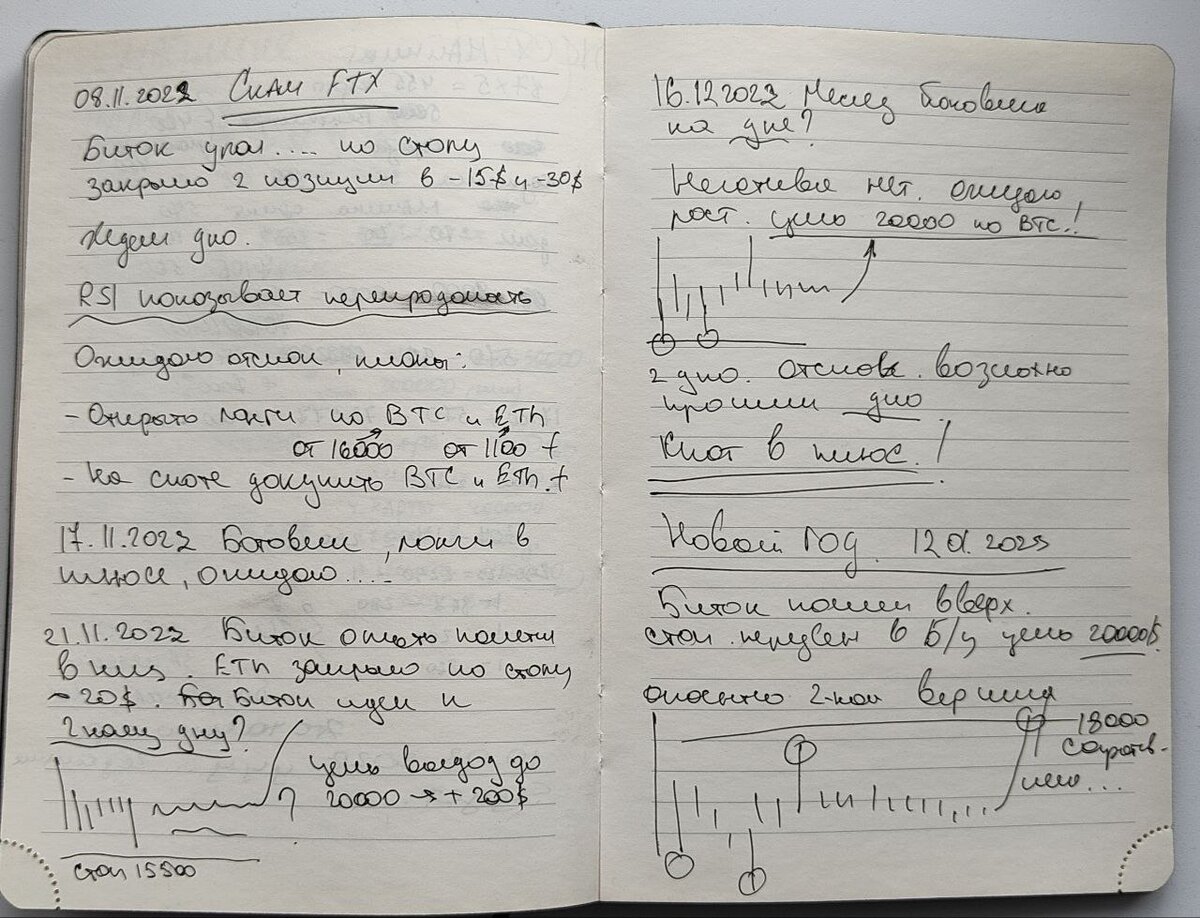 08.11.2022 Скам FTX
Биток упал.... по стопу
закрыло 2 позиции в -15$ и -30$
Ждем дно.
RSI показывает перепроданость
Ожидаю отскок, планы:
- Открыто лонги по BTC и ETh
от 16000 от 1100 +
- На споте докупить BTC и ETh. +
17.11.2022 Боковик, лонги в
плюсе, ожидаю....
21.11.2022 Биток опять полетел
вниз. ETh закрыло по стопу
- 20$. Биток идем к
2ному дну?
цель выход до
20000 → + 200$
?
стоп 15500
16.12 2022 Месяц боковика
на дне?
Негатива нет. ожидаю
рост. цель 20000 по BTC!
2 дно. отскок. возможно
прошли дно
Спот в плюсе!
Новый Год. 12.01.2023
Биток пошел вверх.
стоп переведен в б/у цель 20000$.
опасно 2-ная вершина
18000
сопротив-
ление...